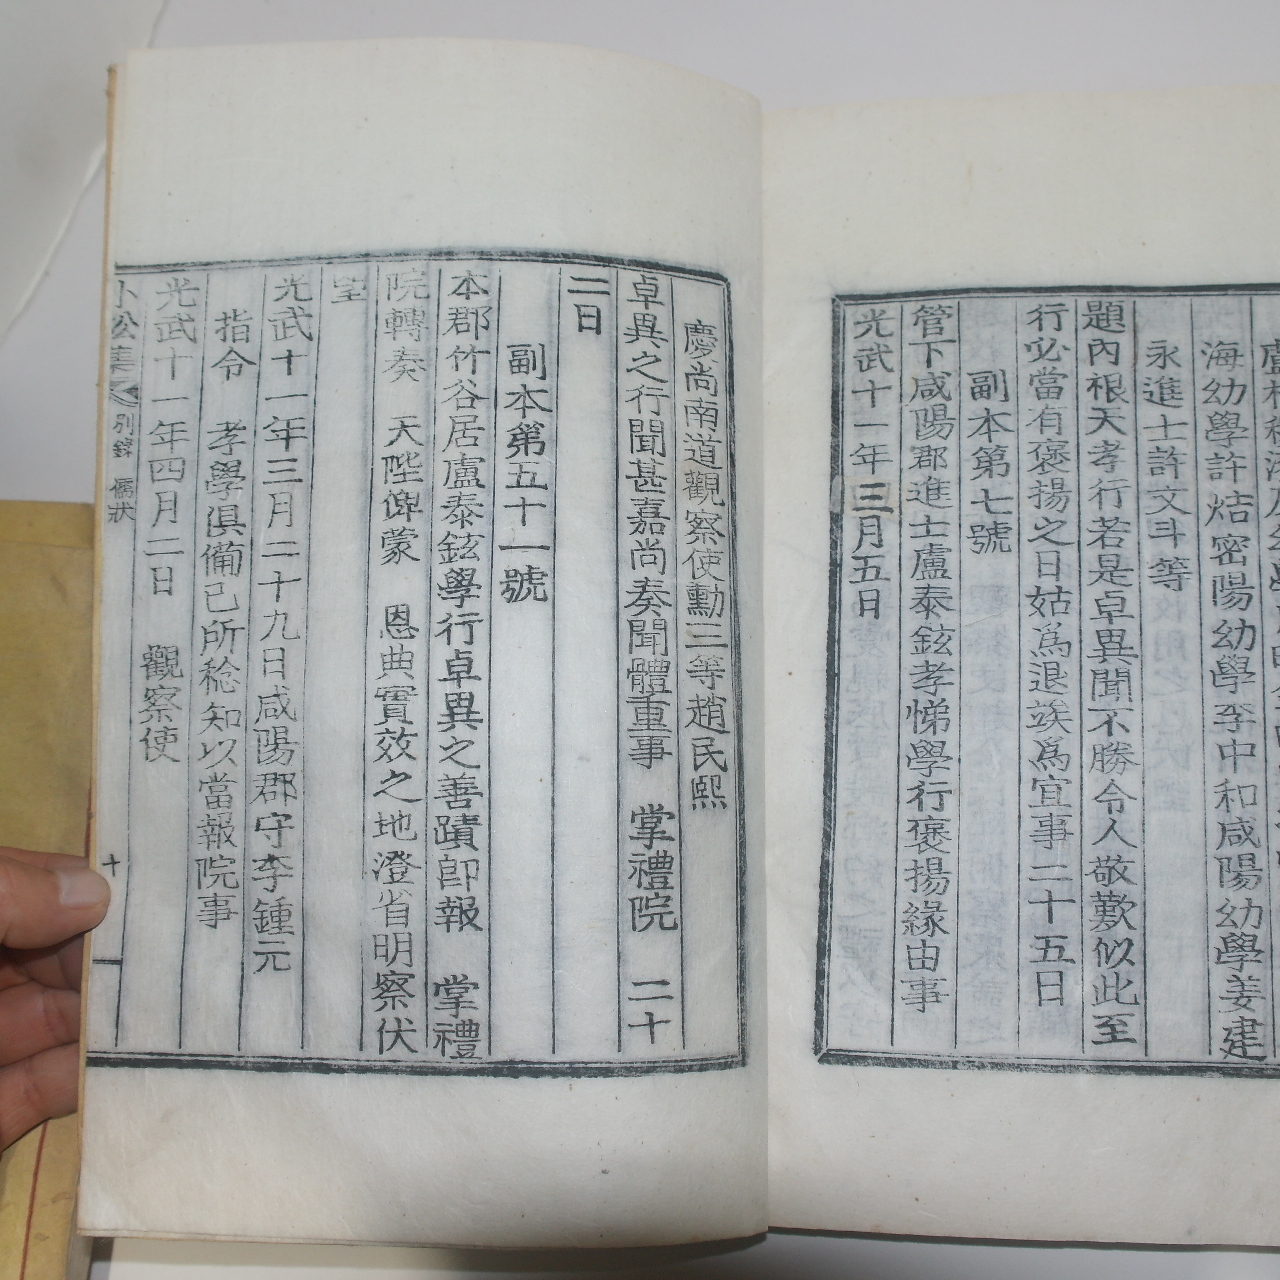 海幼學許㷇密陽幼學李中和咸陽幼學姜建
永進士許文斗等
題內根天孝行若是卓異聞不勝令人敬歎似此至
行必當有褒揚之日姑爲退竢爲宜事二十五日
副本第七號
管下咸陽郡進士盧泰鉉孝悌學行褒揚緣由事
光武十一年三月五日
慶尚南道觀察使勳三等趙民熙
卓異之行聞甚嘉尚奏聞體重事 掌禮院 二十
二日
副本第五十一號
本郡竹谷居盧泰鉉學行卓異之善蹟卽報 掌禮
院轉奏 天陛俾蒙 恩典實效之地澄省明察伏
望
光武十一年三月二十九日咸陽郡守李鍾元
指令 孝學俱備已所稔知以當報院事
光武十一年四月二日 觀察使
小松集 別錄 儒狀 十